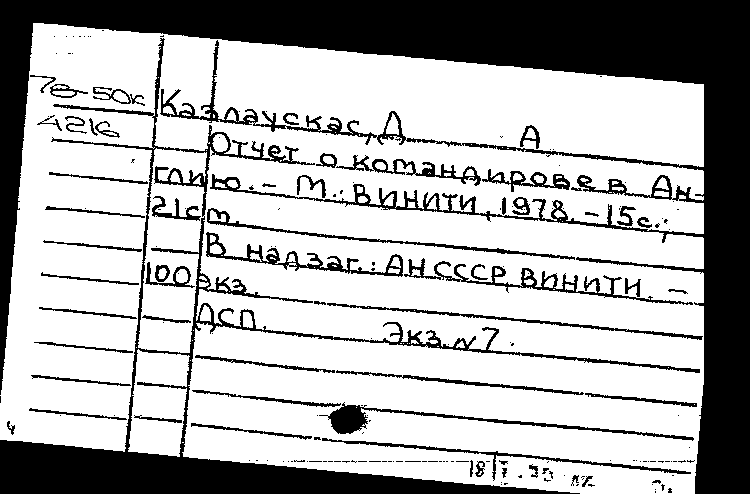 78-50к Казлаускас, Д А
А216 Отчет о командирове в Ан-
глию. - М.: ВИНИТИ, 1978. - 15с.;
21см.
В надзаг.: АН СССР, ВИНИТИ. -
100экз.
ДСП. Экз. N 7.
4
18